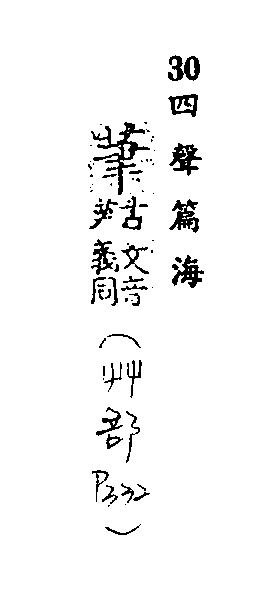 30四聲篇海
古文音
英義同
(艸部P332)